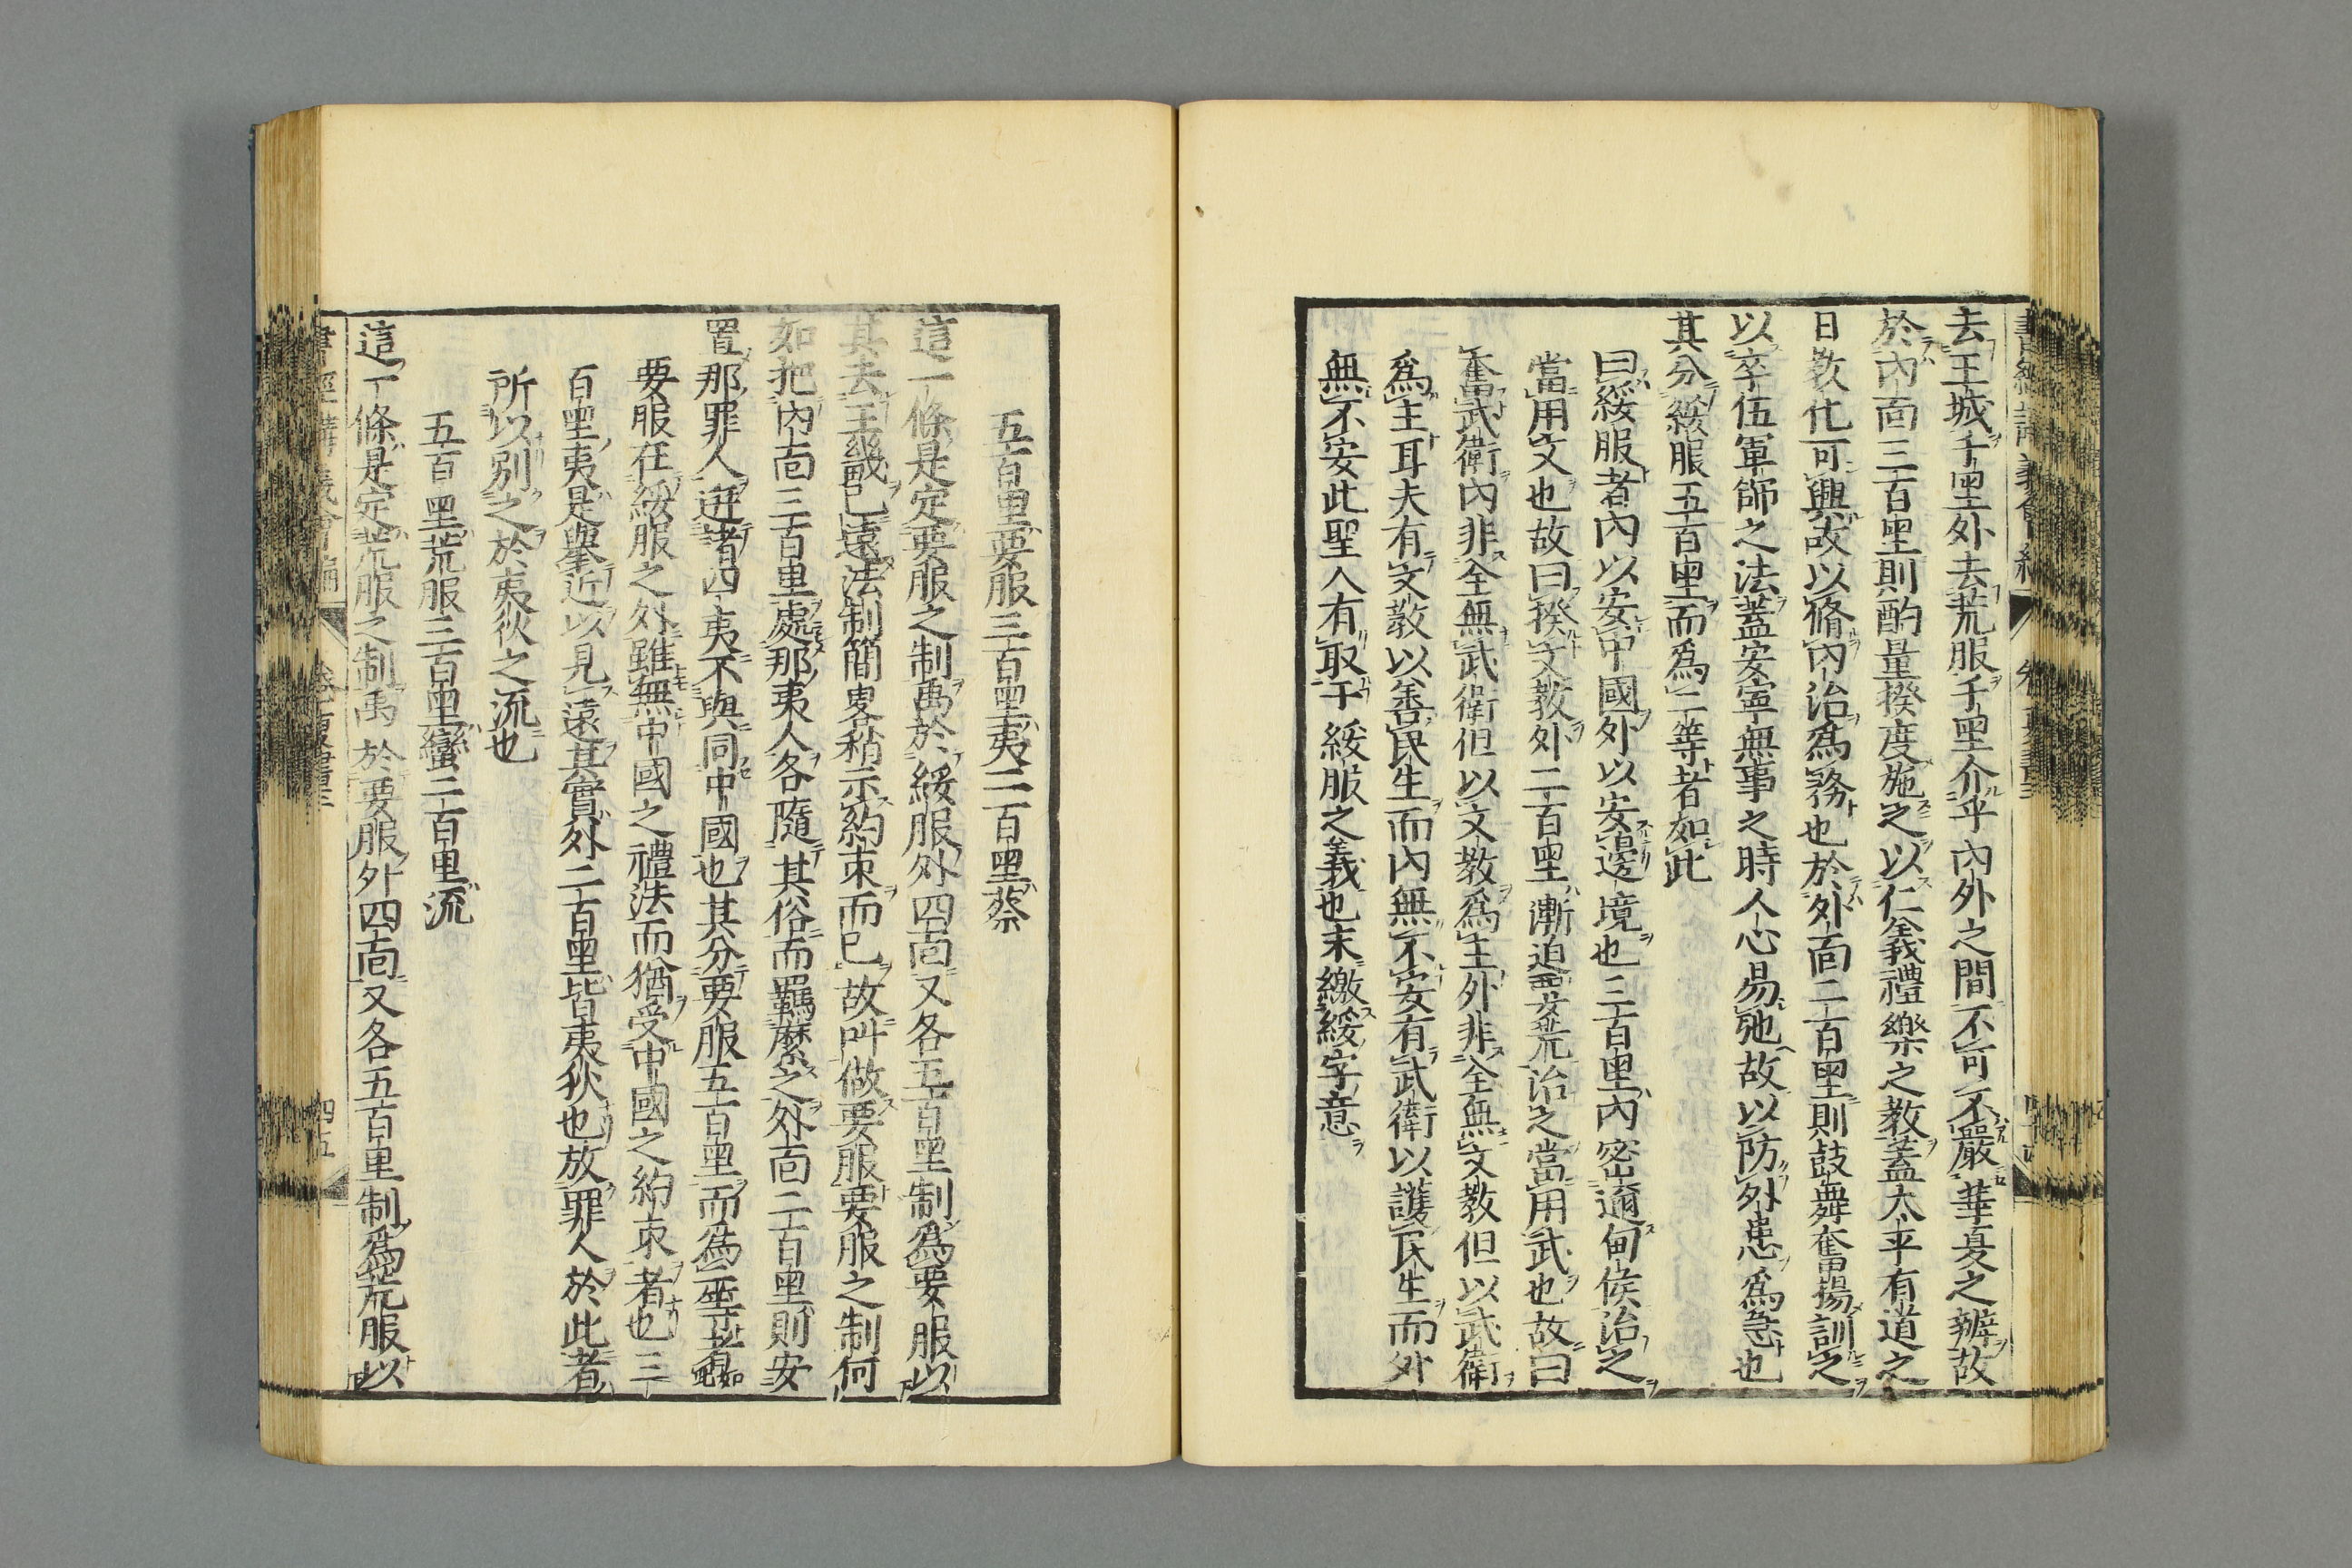 去王城千里外去荒服千里介乎內外之間不可不嚴華夏之辨故
於內面三百里則酌量揆度施之以仁義禮樂之教蓋太平有道之
日敎化可興故以脩內治爲務也於外面二百里則鼓舞奮揚訓之
以卒伍軍師之法蓋安寧無事之時人心易弛故以防外患爲急也
其分綏服五百里而爲二等者如此
曰綏服者內以安中國外以安邊境也三百里內密邇甸侯治之
當用文也故曰揆文教外二百里漸迫要荒治之當用武也故曰
奮武衛內非全無武衛但以文教爲主外非全無文教但以武衛
爲主耳夫有文教以善民生而內無不安有武衛以護民生而外
無不安此聖人有取于綏服之義也末繳綏字意
五百里要服三百里夷二百里蔡
這一條是定要服之制禹於綏服外四面又各五百里制爲要服以
其去王畿已遠法制簡畧稍示約束而已故呌做要服要服之制何
如把內面三百里處那夷人各隨其俗而羈縻之外面二百里則安
置那罪人迸諸四夷不與同中國也其分要服五百里而爲二等者如此
要服在綏服之外雖無中國之禮法而猶受中國之約束者也三
百里夷是舉近以見遠其實外二百里皆夷狄也放罪人於此者
所以別之於夷狄之流也
五百里荒服三百里蠻二百里流
這一條是定荒服之制禹於要服外四面又各五百里制爲荒服以
書經講義會編
四五